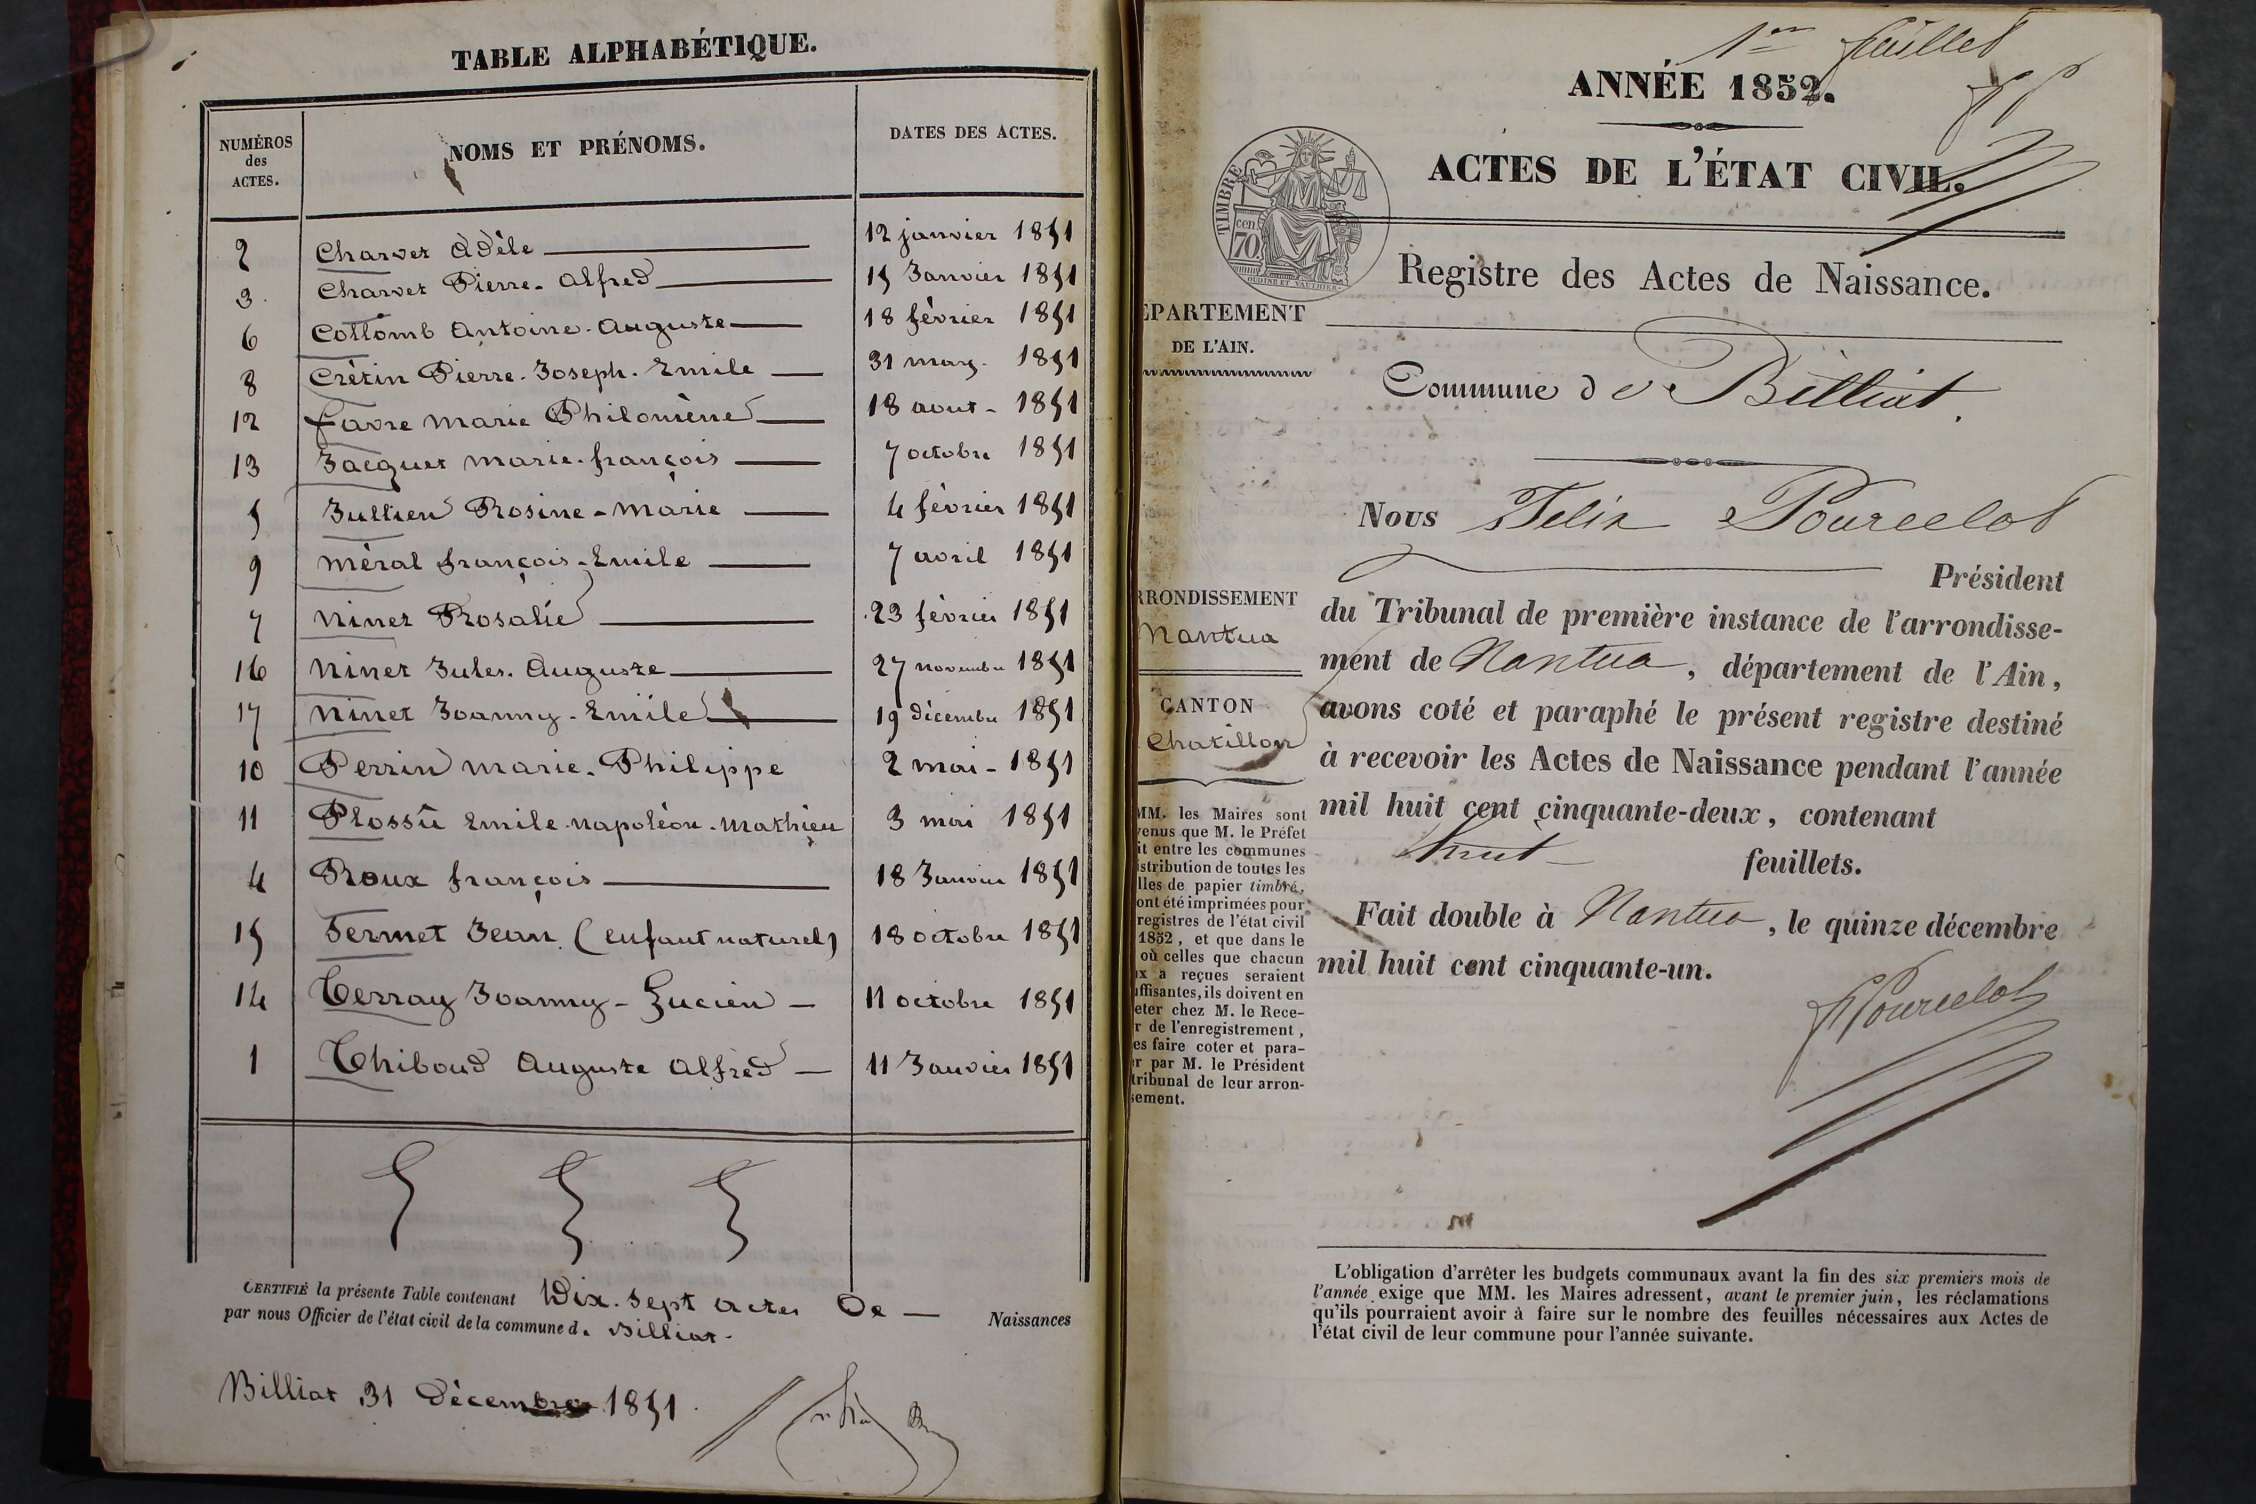 TABLE ALPHABÉTIQUE.
NUMÉROS des ACTES.
NOMS ET PRÉNOMS.
DATES DES ACTES.
2 Charvet Adèle 12 janvier 1851
3 Charvet Pierre-Alfred 15 Janvier 1851
6 Collomb Antoine-Auguste 18 février 1851
8 Crétin Pierre-Joseph-Emile 31 mars 1851
12 favre marie Philomène 18 aout 1851
13 Jacquet marie-françois 7 octobre 1851
5 Jullien Rosine-marie 4 février 1851
9 méral françois-Emile 7 avril 1851
7 Ninet Rosalie 23 février 1851
16 Ninet Jules-Auguste 27 novembre 1851
17 Ninet Joanny-Emile 19 décembre 1851
10 Perrin marie-Philippe 2 mai 1851
11 Plossu Emile-napoléon-mathieu 3 mai 1851
4 Roux françois 18 Janvier 1851
15 Termet Jean (enfant naturel) 18 octobre 1851
14 Terray Joanny-Lucien 11 octobre 1851
1 Thiboud Auguste Alfred 11 Janvier 1851
CERTIFIÉ la présente Table contenant Dix-Sept actes De Naissances
par nous Officier de l'état civil de la commune d. Billiat.
Billiat 31 Décembre 1851
1er feuillet
ANNÉE 1852.
ACTES DE L'ÉTAT CIVIL.
TIMBRE
70 cen.
OUDINE ET VAUTHIER
Registre des Actes de Naissance.
EPARTEMENT
DE L'AIN.
Commune de Billiat.
Nous Felix Pourcelot
Président
du Tribunal de première instance de l'arrondisse-
ment de Nantua, département de l'Ain,
avons coté et paraphé le présent registre destiné
à recevoir les Actes de Naissance pendant l'année
mil huit cent cinquante-deux, contenant
huit feuillets.
Fait double à Nantua, le quinze décembre
mil huit cent cinquante-un.
FPourcelot
RRONDISSEMENT
Nantua
CANTON
Chatillon
MM. les Maires sont
venus que M. le Préfet
it entre les communes
istribution de toutes les
lles de papier timbré,
ont été imprimées pour
registres de l'état civil
1852, et que dans le
où celles que chacun
ux a reçues seraient
uffisantes, ils doivent en
eter chez M. le Rece-
r de l'enregistrement,
es faire coter et para-
er par M. le Président
tribunal de leur arron-
sement.
L'obligation d'arrêter les budgets communaux avant la fin des six premiers mois de
l'année exige que MM. les Maires adressent, avant le premier juin, les réclamations
qu'ils pourraient avoir à faire sur le nombre des feuilles nécessaires aux Actes de
l'état civil de leur commune pour l'année suivante.